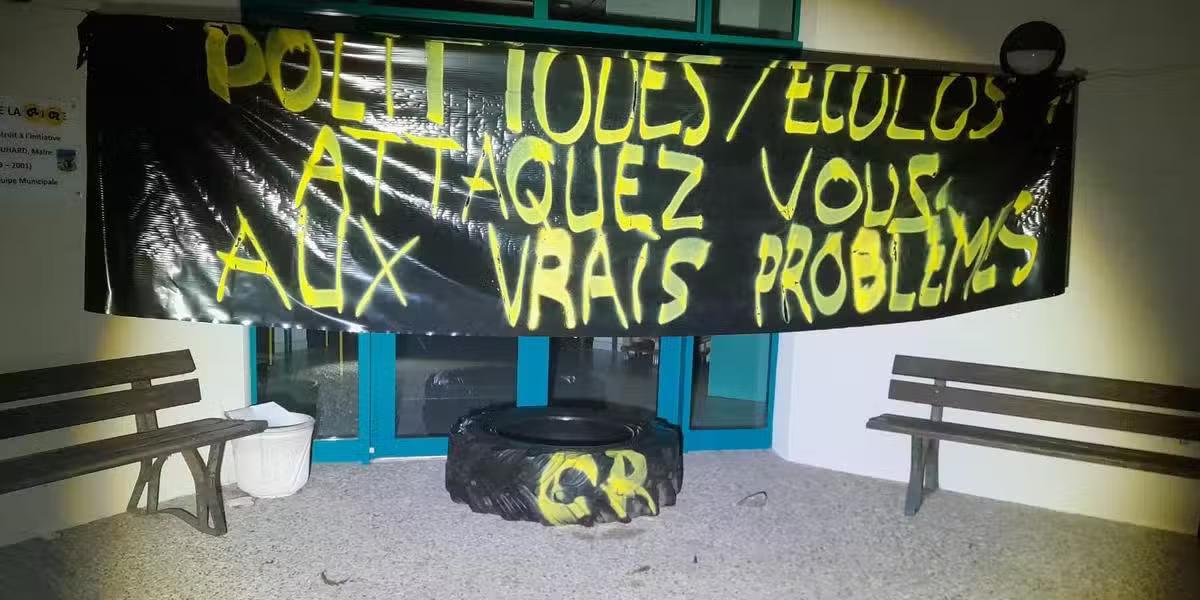 POLITIQUES / ECOLOS
ATTAQUEZ VOUS
AUX VRAIS PROBLEMES
CR
E LA
truit à l'initiative
UHARD, Maire
– 2001)
quipe Municipale